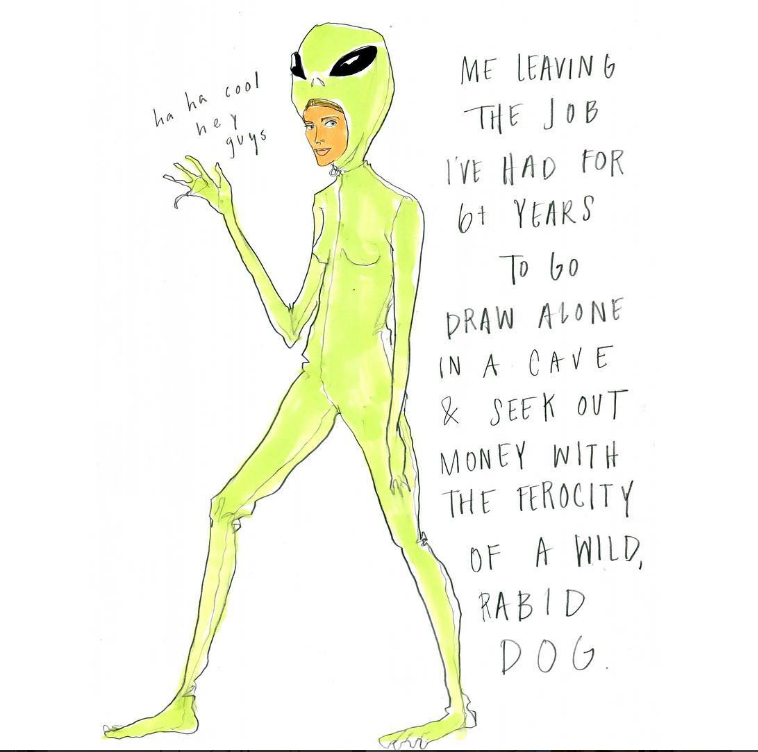 ha ha cool
hey
guys
ME LEAVING
THE JOB
I'VE HAD FOR
6+ YEARS
TO GO
DRAW ALONE
IN A CAVE
& SEEK OUT
MONEY WITH
THE FEROCITY
OF A WILD,
RABID
DOG.